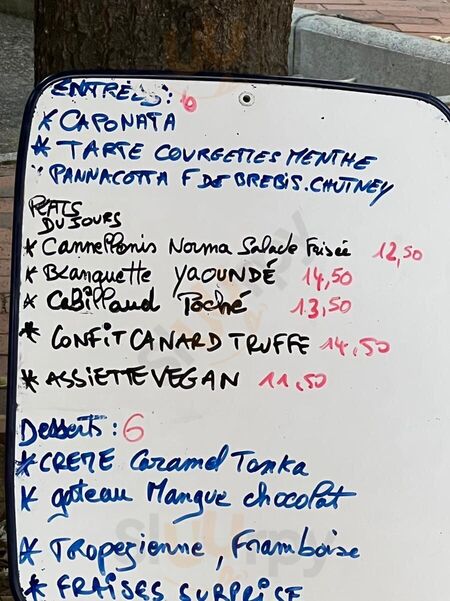 ENTRÉES: 6
* CAPONATA
* TARTE COURGETTES MENTHE
" PANNACOTTA F DE BREBIS. CHUTNEY
PLATS
DU JOURS
* Cannellonis Norma Salade Frisée 12,50
* Blanquette YAOUNDÉ 14,50
* Cabillaud Poché 13,50
* CONFIT CANARD TRUFFE 14,50
* ASSIETTE VEGAN 11,50
Desserts: 6
* CREME Caramel Tonka
* gateau Mangue chocolat
* TROPEZIENNE, Framboise
* FRAISES SURPRISE